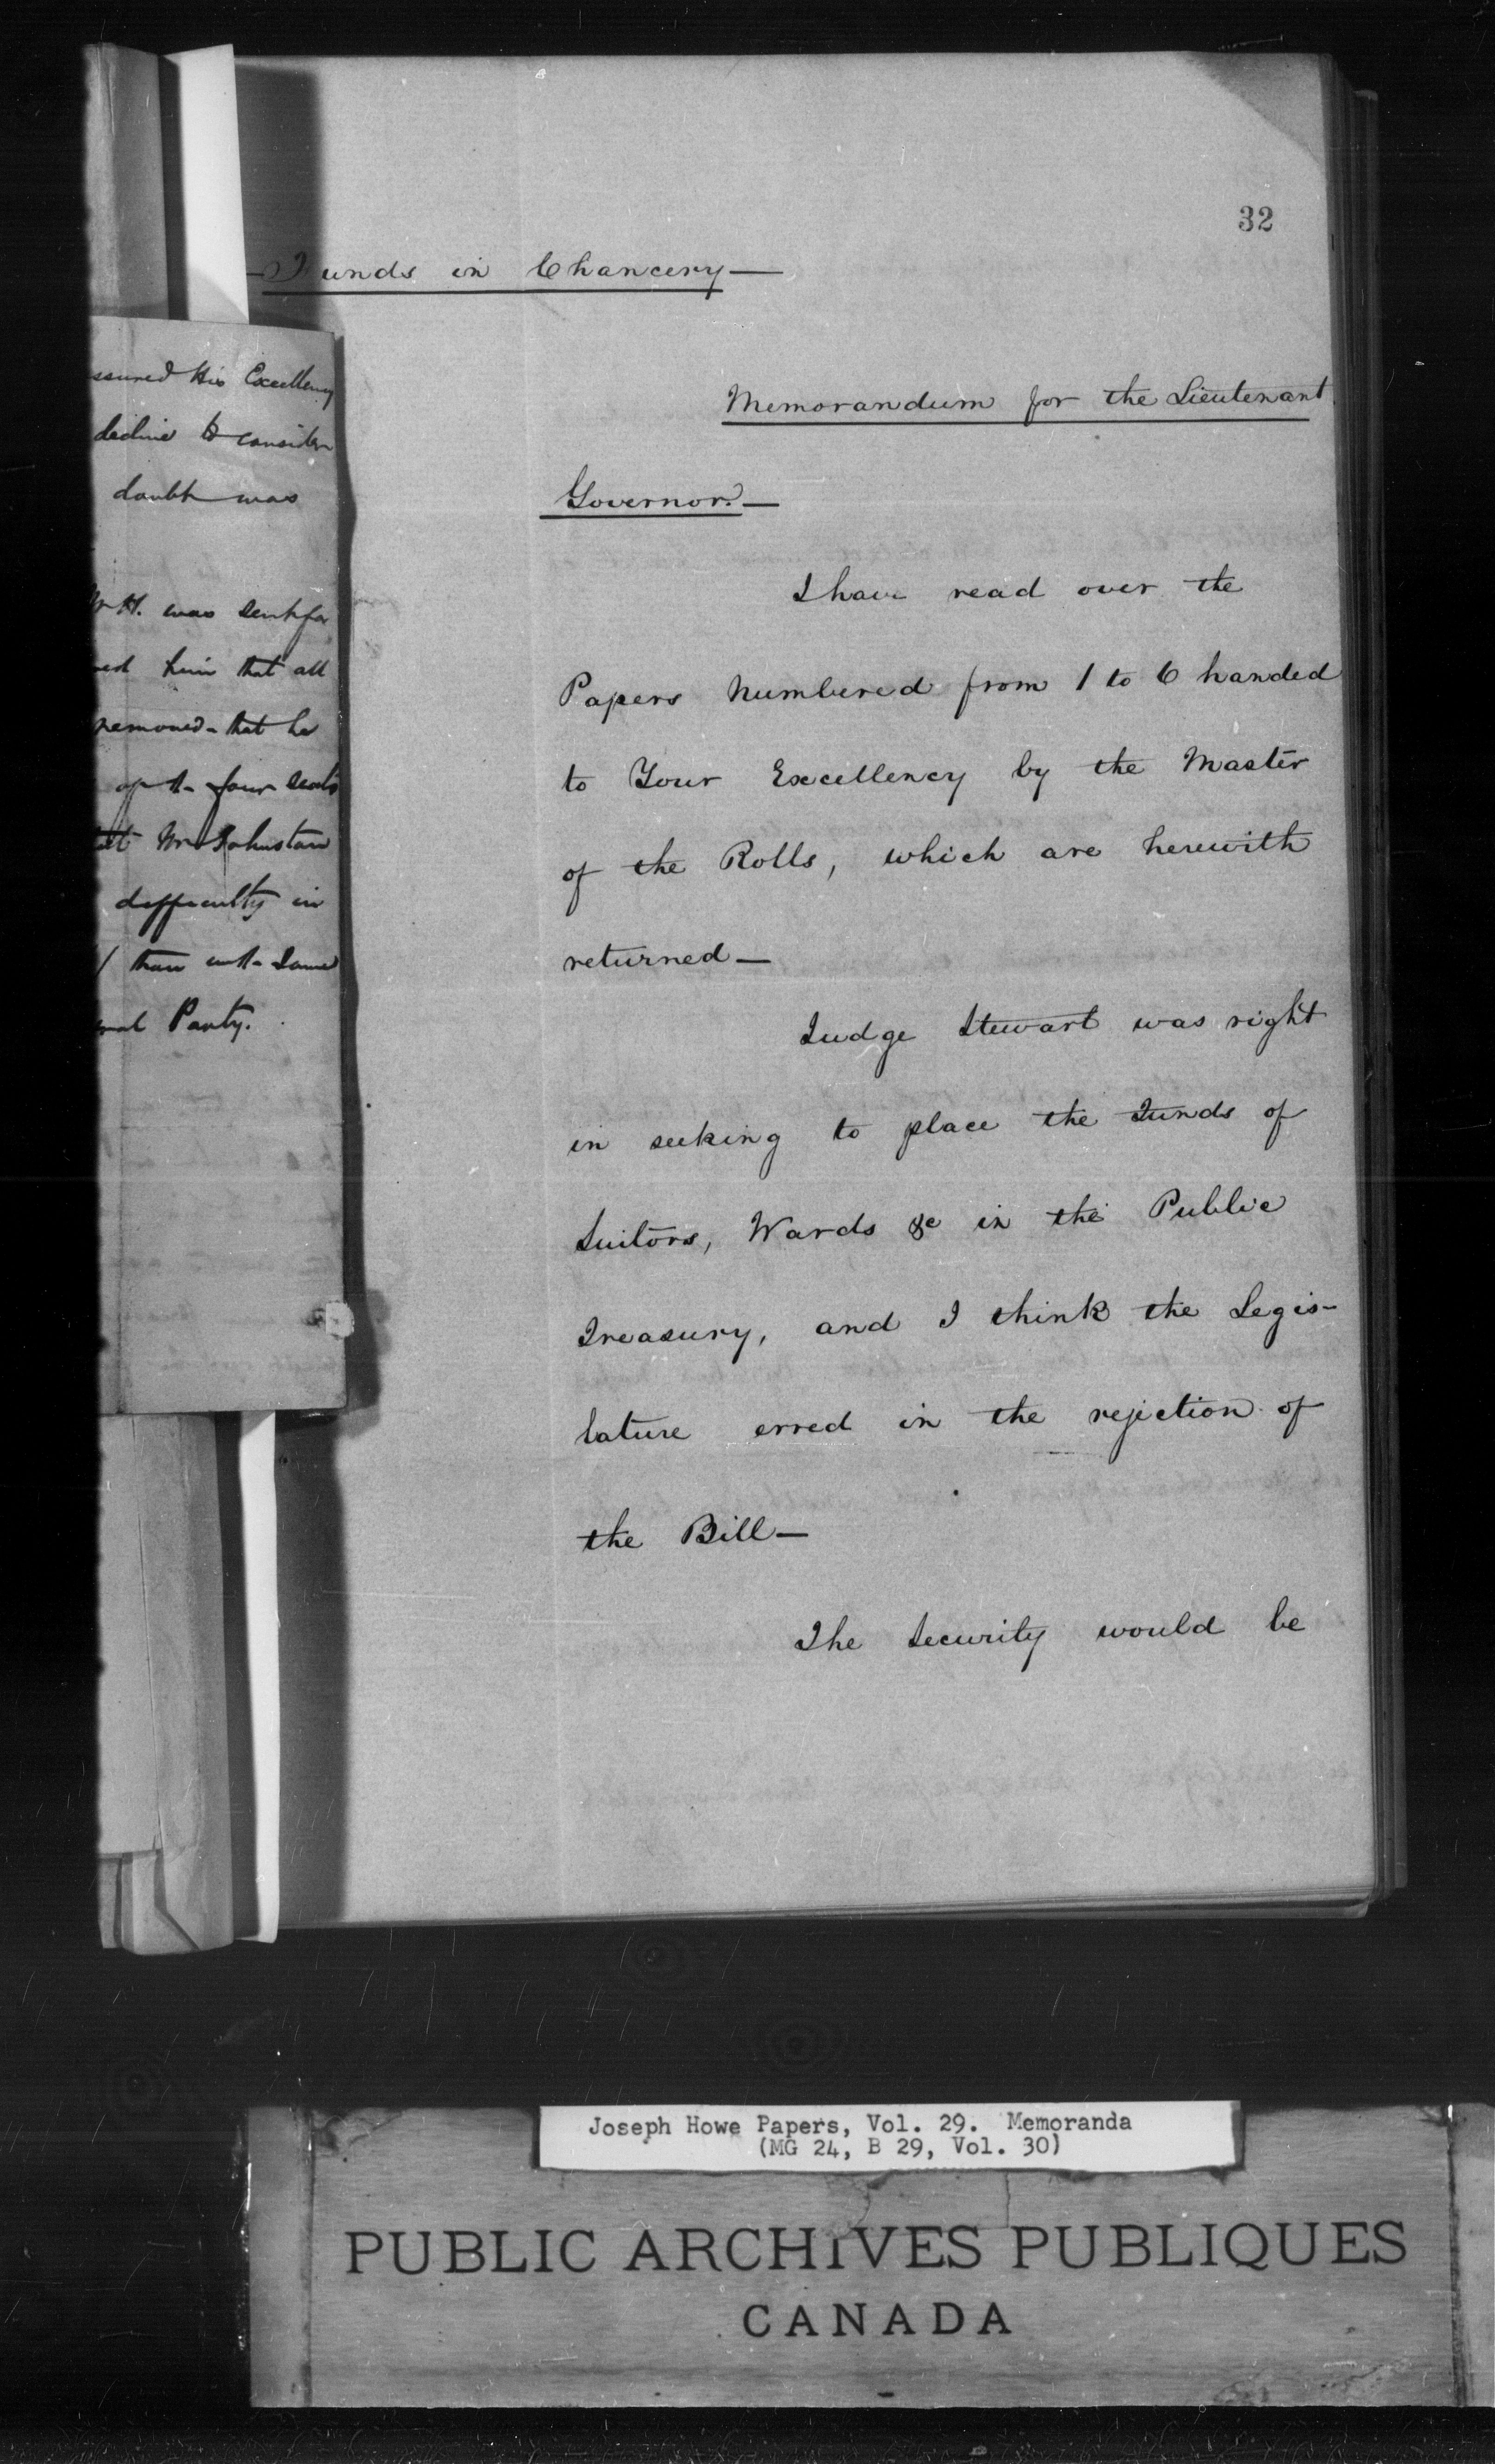 32
Funds in Chancery—
Memorandum for the Lieutenant
Governor.—
I have read over the
Papers numbered from 1 to 6 handed
to Your Excellency by the Master
of the Rolls, which are herewith
returned—
Judge Stewart was right
in seeking to place the Funds of
Suitors, Wards &c in the Public
Treasury, and I think the Legis-
lature erred in the rejection of
the Bill—
The Security would be
ssured His Excellency
decline to consider
doubt was
H. was sent for
him that all
removed - that he
four seats
Mr Johnston
difficulty in
than
Party.
Joseph Howe Papers, Vol. 29. Memoranda
(MG 24, B 29, Vol. 30)
PUBLIC ARCHIVES PUBLIQUES
CANADA